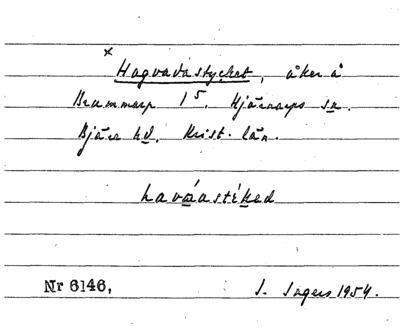 x
Hagvadastycket, åker å
Brammarp 1⁵. Hjärnarps sn.
Bjäre hd. Krist. län.
havááastékad
Nr 6146, J. Ingers 1954.